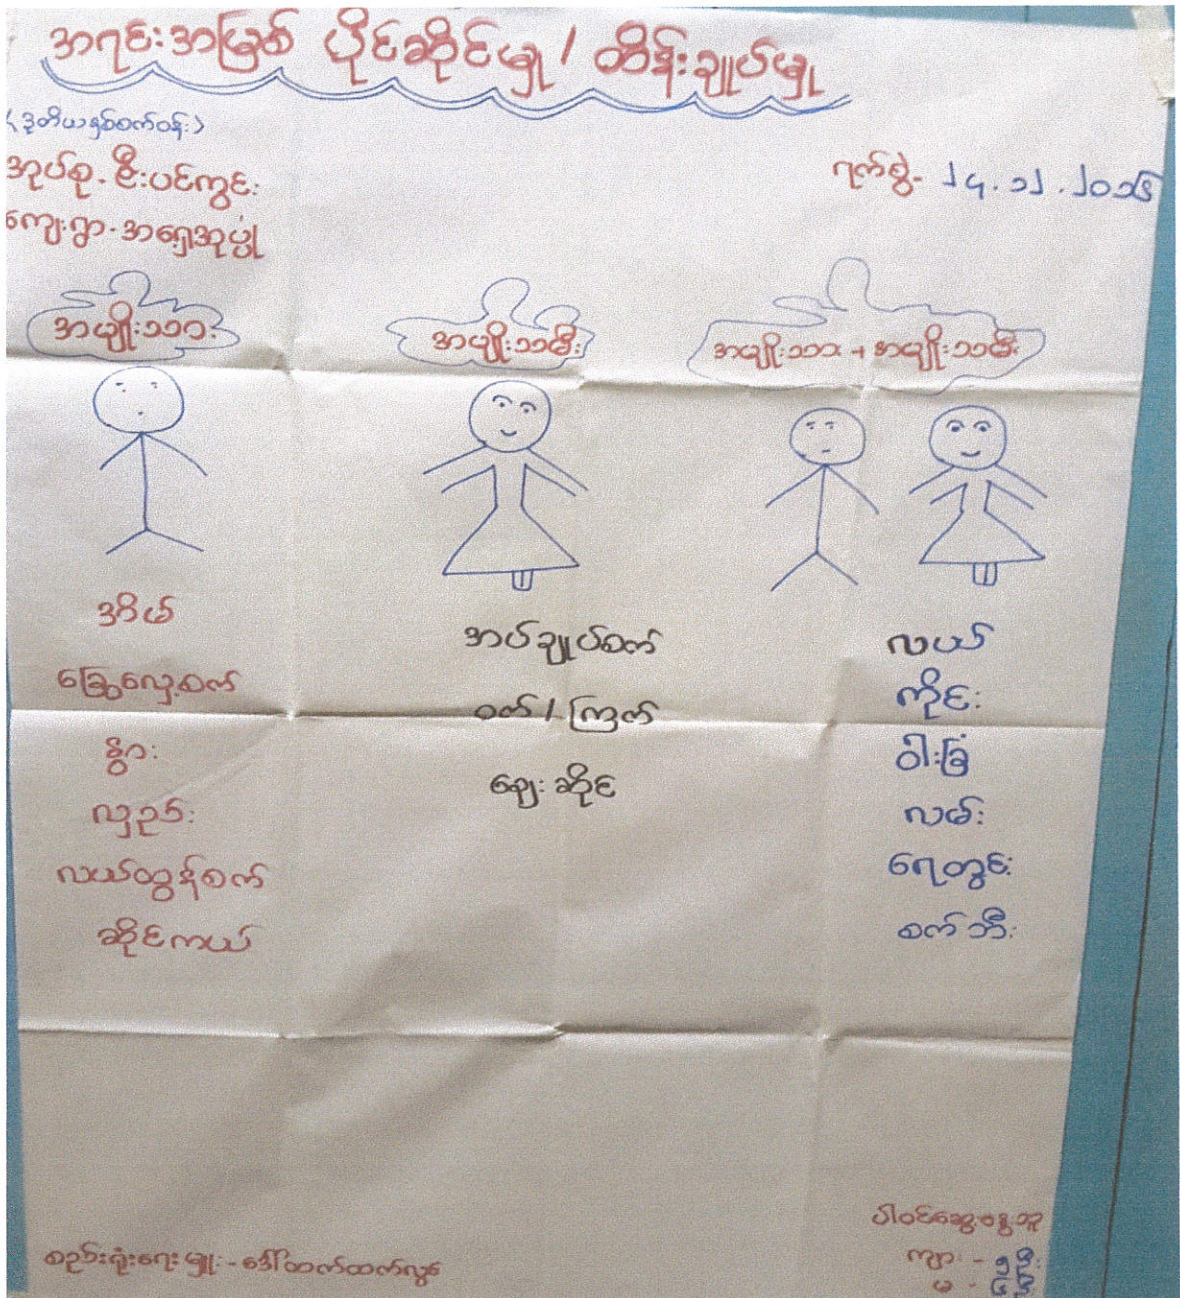 အရင်းအမြစ် ပိုင်ဆိုင်မှု / ထိန်းချုပ်မှု
(ဒုတိယနှစ်စက်ဝန်း)
အုပ်စု - ဦးပင်ကွင်း
ရက်စွဲ - ၂၄.၁၂.၂၀၁၆
ကျေးရွာ - အရှေ့အုပ်ပို
အမျိုးသား
အမျိုးသမီး
အမျိုးသား + အမျိုးသမီး
အိမ်
ခြွေလှေ့စက်
နွား
လှည်း
လယ်ထွန်စက်
ဆိုင်ကယ်
အပ်ချုပ်စက်
ဝက် / ကြက်
ဈေးဆိုင်
လယ်
ကိုင်း
ဝါးခြံ
လမ်း
ရေတွင်း
စက်ဘီး
စည်းရုံးရေးမှူး - ဒေါ်ထက်ထက်လွင်
ပါဝင်ဆွေးနွေးသူ
ကျား - ၅ ဦး
မ - ဦး